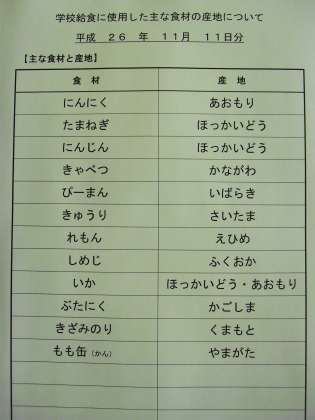 学校給食に使用した主な食材の産地について
平成 26 年 11月 11日分
【主な食材と産地】
食材 産地
にんにく あおもり
たまねぎ ほっかいどう
にんじん ほっかいどう
きゃべつ かながわ
ぴーまん いばらき
きゅうり さいたま
れもん えひめ
しめじ ふくおか
いか ほっかいどう・あおもり
ぶたにく かごしま
きざみのり くまもと
もも缶(かん) やまがた